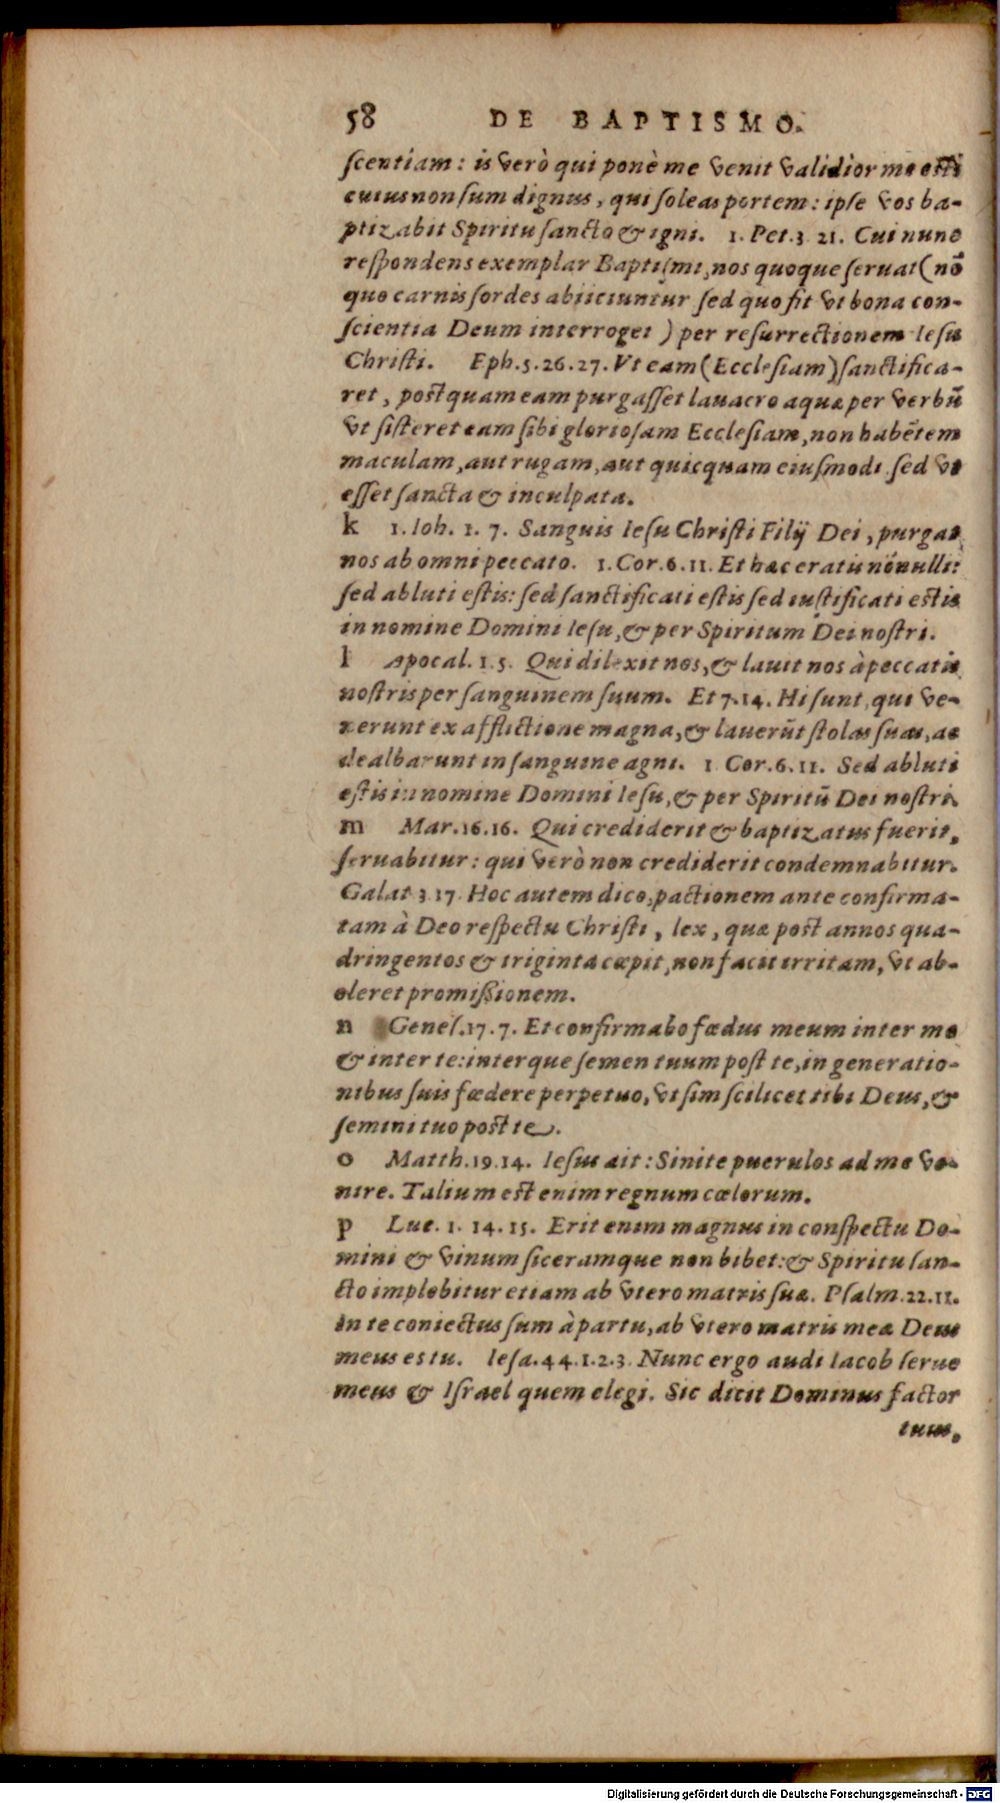 58 DE BAPTISMO.
ſcentiam: is verò qui ponè me venit validior me eſt
cuius non ſum dignus, qui ſoleas portem: ipſe vos ba-
ptizabit Spiritu ſancto & igni. 1. Pet. 3 21. Cui nunc
reſpondens exemplar Baptiſmi, nos quoque ſeruat (nō
quo carnis ſordes abiiciuntur ſed quo fit vt bona con-
ſcientia Deum interroget) per reſurrectionem Ieſu
Chriſti. Eph. 5. 26. 27. Vt eam (Eccleſiam) ſanctifica-
ret, poſtquam eam purgaſſet lauacro aquæ per verbū
vt ſiſteret eam ſibi glorioſam Eccleſiam, non habētem
maculam, aut rugam, aut quicquam eiuſmodi ſed vt
eſſet ſancta & inculpata.
k 1. Ioh. 1. 7. Sanguis Ieſu Chriſti Filij Dei, purgat
nos ab omni peccato. 1. Cor. 6. 11. Et hæc eratis nōnulli:
ſed abluti eſtis: ſed ſanctificati eſtis ſed iuſtificati eſtis
in nomine Domini Ieſu, & per Spiritum Dei noſtri.
l Apocal. 1. 5. Qui dilexit nos, & lauit nos à peccatis
noſtris per ſanguinem ſuum. Et 7. 14. Hi ſunt, qui ve-
nerunt ex afflictione magna, & lauerūt ſtolas ſuas, ac
dealbarunt in ſanguine agni. 1 Cor. 6. 11. Sed abluti
eſtis in nomine Domini Ieſu, & per Spiritū Dei noſtri.
m Mar. 16. 16. Qui crediderit & baptizatus fuerit,
ſeruabitur: qui verò non crediderit condemnabitur.
Galat 3 17. Hoc autem dico, pactionem ante confirma-
tam à Deo reſpectu Chriſti, lex, quæ poſt annos qua-
dringentos & triginta cœpit, non facit irritam, vt ab-
oleret promiſsionem.
n Geneſ. 17. 7. Et confirmabo fœdus meum inter me
& inter te: interque ſemen tuum poſt te, in generatio-
nibus ſuis fœdere perpetuo, vt ſim ſcilicet tibi Deus, &
ſemini tuo poſt te.
o Matth. 19. 14. Ieſus ait: Sinite puerulos ad me ve-
nire. Talium eſt enim regnum cœlorum.
p Luc. 1. 14. 15. Erit enim magnus in conſpectu Do-
mini & vinum ſiceramque non bibet: & Spiritu ſan-
cto implebitur etiam ab vtero matris ſuæ. Pſalm. 22. 11.
In te coniectus ſum à partu, ab vtero matris meæ Deus
meus es tu. Ieſa. 44. 1. 2. 3. Nunc ergo audi Iacob ſerue
meus & Iſrael quem elegi. Sic dicit Dominus factor
tuus,
Digitalisierung gefördert durch die Deutsche Forschungsgemeinschaft - DFG